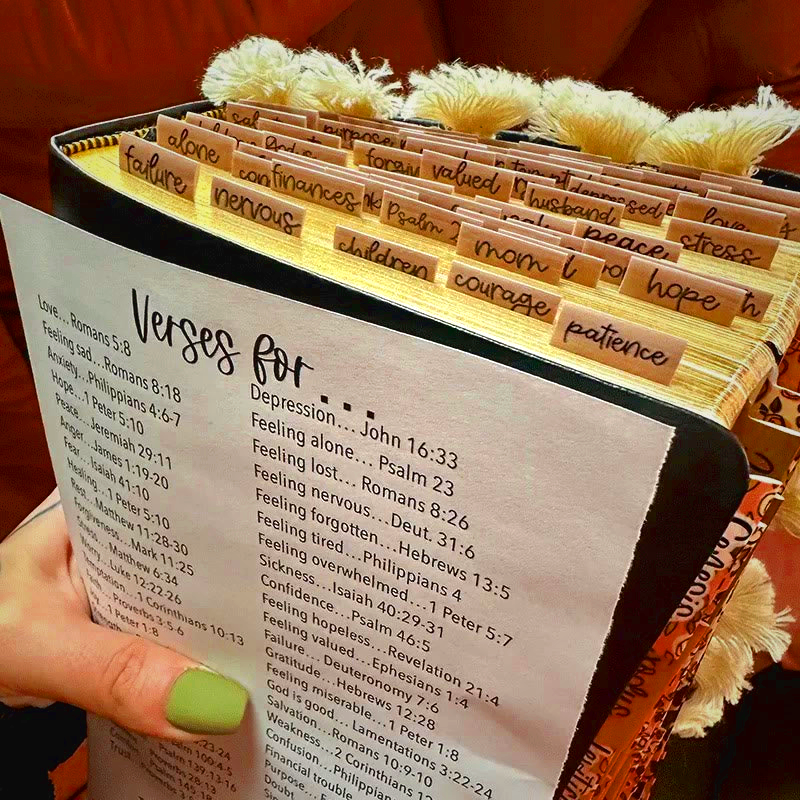 purpose
alone
failure
finances
nervous
valued
Psalm
children
depressed
husband
love
peace
stress
mom
courage
hope
patience
Verses for ...
Love... Romans 5:8
Feeling sad...Romans 8:18
Anxiety...Philippians 4:6-7
Hope...1 Peter 5:10
Peace...Jeremiah 29:11
Anger...James 1:19-20
Fear...Isaiah 41:10
Healing...1 Peter 5:10
Rest...Matthew 11:28-30
Forgiveness...Mark 11:25
Stress...Matthew 6:34
Worry...Luke 12:22-26
Temptation...1 Corinthians 10:13
Proverbs 3:5-6
1 Peter 1:8
Psalm 100:4-5
Psalm 139:13-16
Proverbs 28:13
Psalm 145:18
Trust...Proverbs
Depression...John 16:33
Feeling alone... Psalm 23
Feeling lost... Romans 8:26
Feeling nervous...Deut. 31:6
Feeling forgotten...Hebrews 13:5
Feeling tired...Philippians 4
Feeling overwhelmed...1 Peter 5:7
Sickness...Isaiah 40:29-31
Confidence...Psalm 46:5
Feeling hopeless...Revelation 21:4
Feeling valued...Ephesians 1:4
Failure... Deuteronomy 7:6
Gratitude...Hebrews 12:28
Feeling miserable...1 Peter 1:8
God is good... Lamentations 3:22-24
Salvation...Romans 10:9-10
Weakness...2 Corinthians 12
Confusion...Philippian
Financial trouble
Purpose...
Doubt